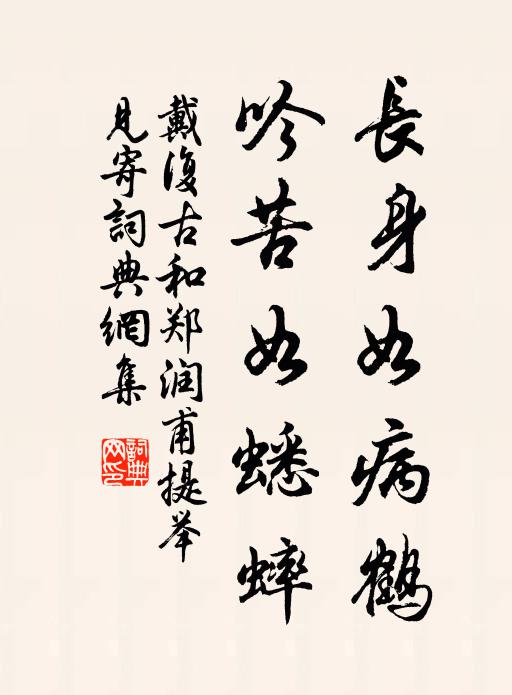 長身如病鶴
吟苦如蟋蟀
戴復古和郑润甫提举
見寄詞典網集
詞典网印